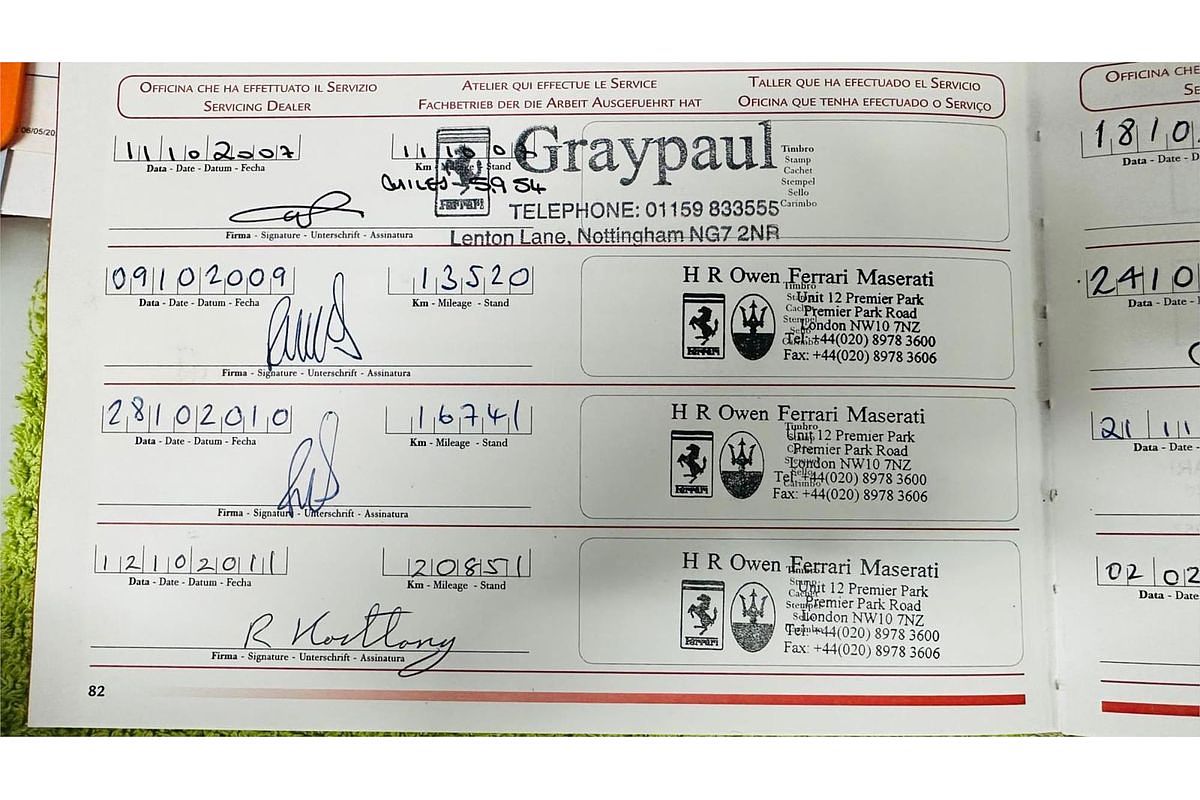 OFFICINA CHE HA EFFETTUATO IL SERVIZIO
SERVICING DEALER
ATELIER QUI EFFECTUE LE SERVICE
FACHBETRIEB DER DIE ARBEIT AUSGEFUEHRT HAT
TALLER QUE HA EFECTUADO EL SERVICIO
OFICINA QUE TENHA EFECTUADO O SERVIÇO
06/05/20
11102007
Data - Date - Datum - Fecha
Km - Mileage - Stand
MILES - 5954
Ferrari
Graypaul
TELEPHONE: 01159 833555
Lenton Lane, Nottingham NG7 2NR
Timbro
Stamp
Cachet
Stempel
Sello
Carimbo
Firma - Signature - Unterschrift - Assinatura
09102009
Data - Date - Datum - Fecha
13520
Km - Mileage - Stand
Firma - Signature - Unterschrift - Assinatura
H R Owen Ferrari Maserati
Unit 12 Premier Park
Premier Park Road
London NW10 7NZ
Tel: +44(020) 8978 3600
Fax: +44(020) 8978 3606
Ferrari
28102010
Data - Date - Datum - Fecha
16741
Km - Mileage - Stand
Firma - Signature - Unterschrift - Assinatura
H R Owen Ferrari Maserati
Unit 12 Premier Park
Premier Park Road
London NW10 7NZ
Tel: +44(020) 8978 3600
Fax: +44(020) 8978 3606
Ferrari
12102011
Data - Date - Datum - Fecha
20851
Km - Mileage - Stand
Firma - Signature - Unterschrift - Assinatura
H R Owen Ferrari Maserati
Unit 12 Premier Park
Premier Park Road
London NW10 7NZ
Tel: +44(020) 8978 3600
Fax: +44(020) 8978 3606
Ferrari
82
OFFICINA CHE
1810
Data - Date - D
2410
Data - Date -
21 11
Data - Date -
02 02
Data - Date